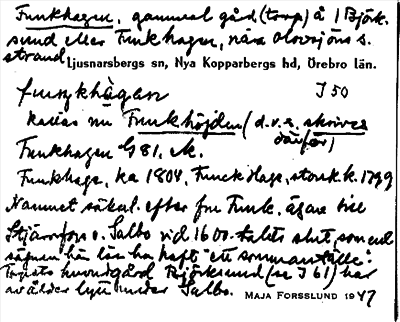 Funkhagen, gammal gård (torp) å 1 Björk-
sund eller Funkhagen, nära Olovsjöns s.
strand Ljusnarsbergs sn, Nya Kopparbergs hd, Örebro län.
fuŋkhagen I 50
kallas nu Funkhöjden (d.v.s. skrives
därför)
Funkhagen G 81, M.
Funkhage, ka 1804, Funck Hage, stork. k. 1799
Namnet säkerl. efter fru Funk, ägare till
Stjärnfors o. Salbo vid 1600-talets slut, som enl.
sägnen här lär ha haft "ett sommarställe".
Torpets huvudgård Björksund (se I 61) har
av ålder lytt under Salbo. MAJA FORSSLUND 1947